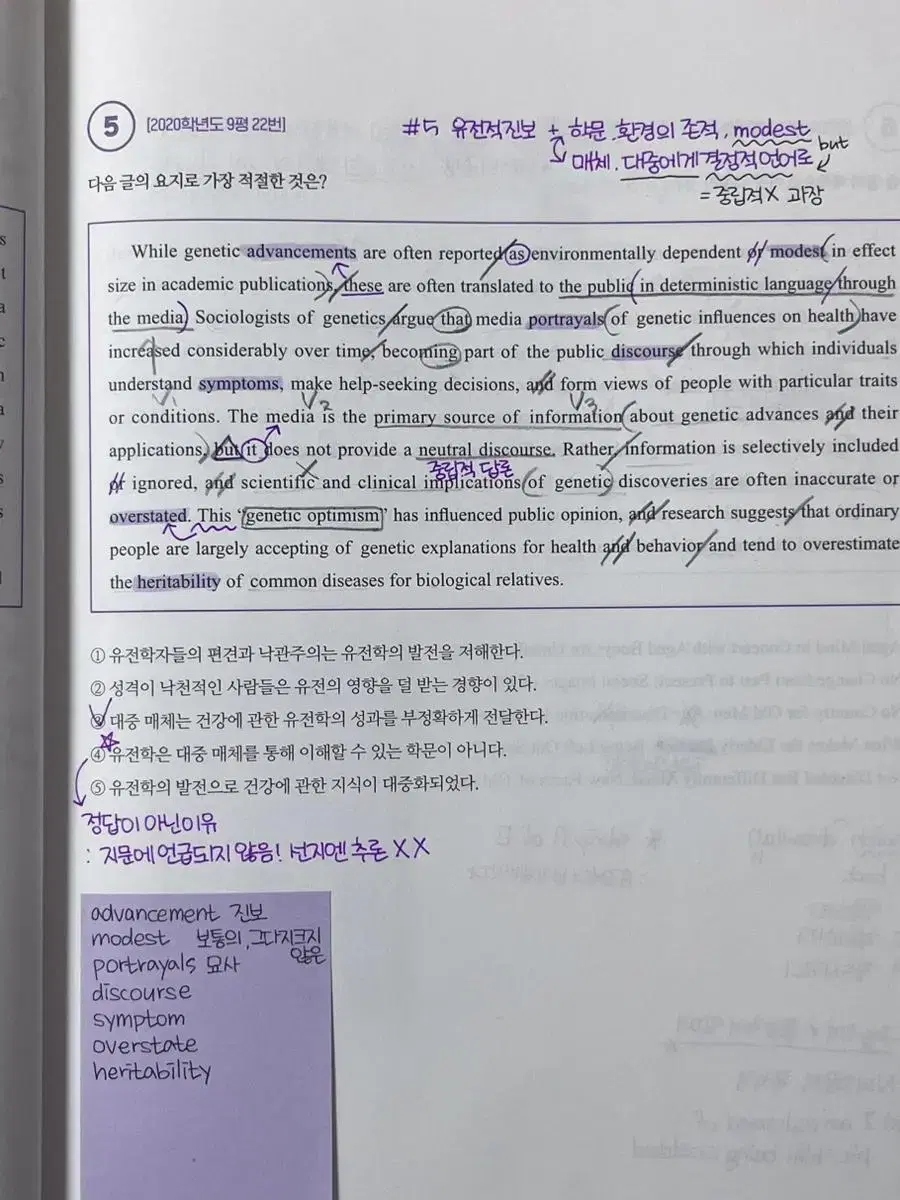 5 [2020학년도 9평 22번]
#5 유전적진보 + 학문.환경의존적, modest
but
매체. 대중에게 결정적언어로
= 중립적X 과장
다음 글의 요지로 가장 적절한 것은?
While genetic advancements are often reported as environmentally dependent or modest in effect
size in academic publications, these are often translated to the public in deterministic language through
the media. Sociologists of genetics argue that media portrayals of genetic influences on health have
increased considerably over time, becoming part of the public discourse through which individuals
understand symptoms, make help-seeking decisions, and form views of people with particular traits
1 2 3
or conditions. The media is the primary source of information about genetic advances and their
applications, but it does not provide a neutral discourse. Rather, information is selectively included
중립적 담론
or ignored, and scientific and clinical implications of genetic discoveries are often inaccurate or
overstated. This ‘genetic optimism’ has influenced public opinion, and research suggests that ordinary
people are largely accepting of genetic explanations for health and behavior and tend to overestimate
the heritability of common diseases for biological relatives.
① 유전학자들의 편견과 낙관주의는 유전학의 발전을 저해한다.
② 성격이 낙천적인 사람들은 유전의 영향을 덜 받는 경향이 있다.
③ 대중 매체는 건강에 관한 유전학의 성과를 부정확하게 전달한다.
④ 유전학은 대중 매체를 통해 이해할 수 있는 학문이 아니다.
⑤ 유전학의 발전으로 건강에 관한 지식이 대중화되었다.
정답이 아닌이유
: 지문에 언급되지 않음! 선지엔 추론 XX
advancement 진보
modest 보통의, 그다지크지
않은
portrayals 묘사
discourse
symptom
overstate
heritability